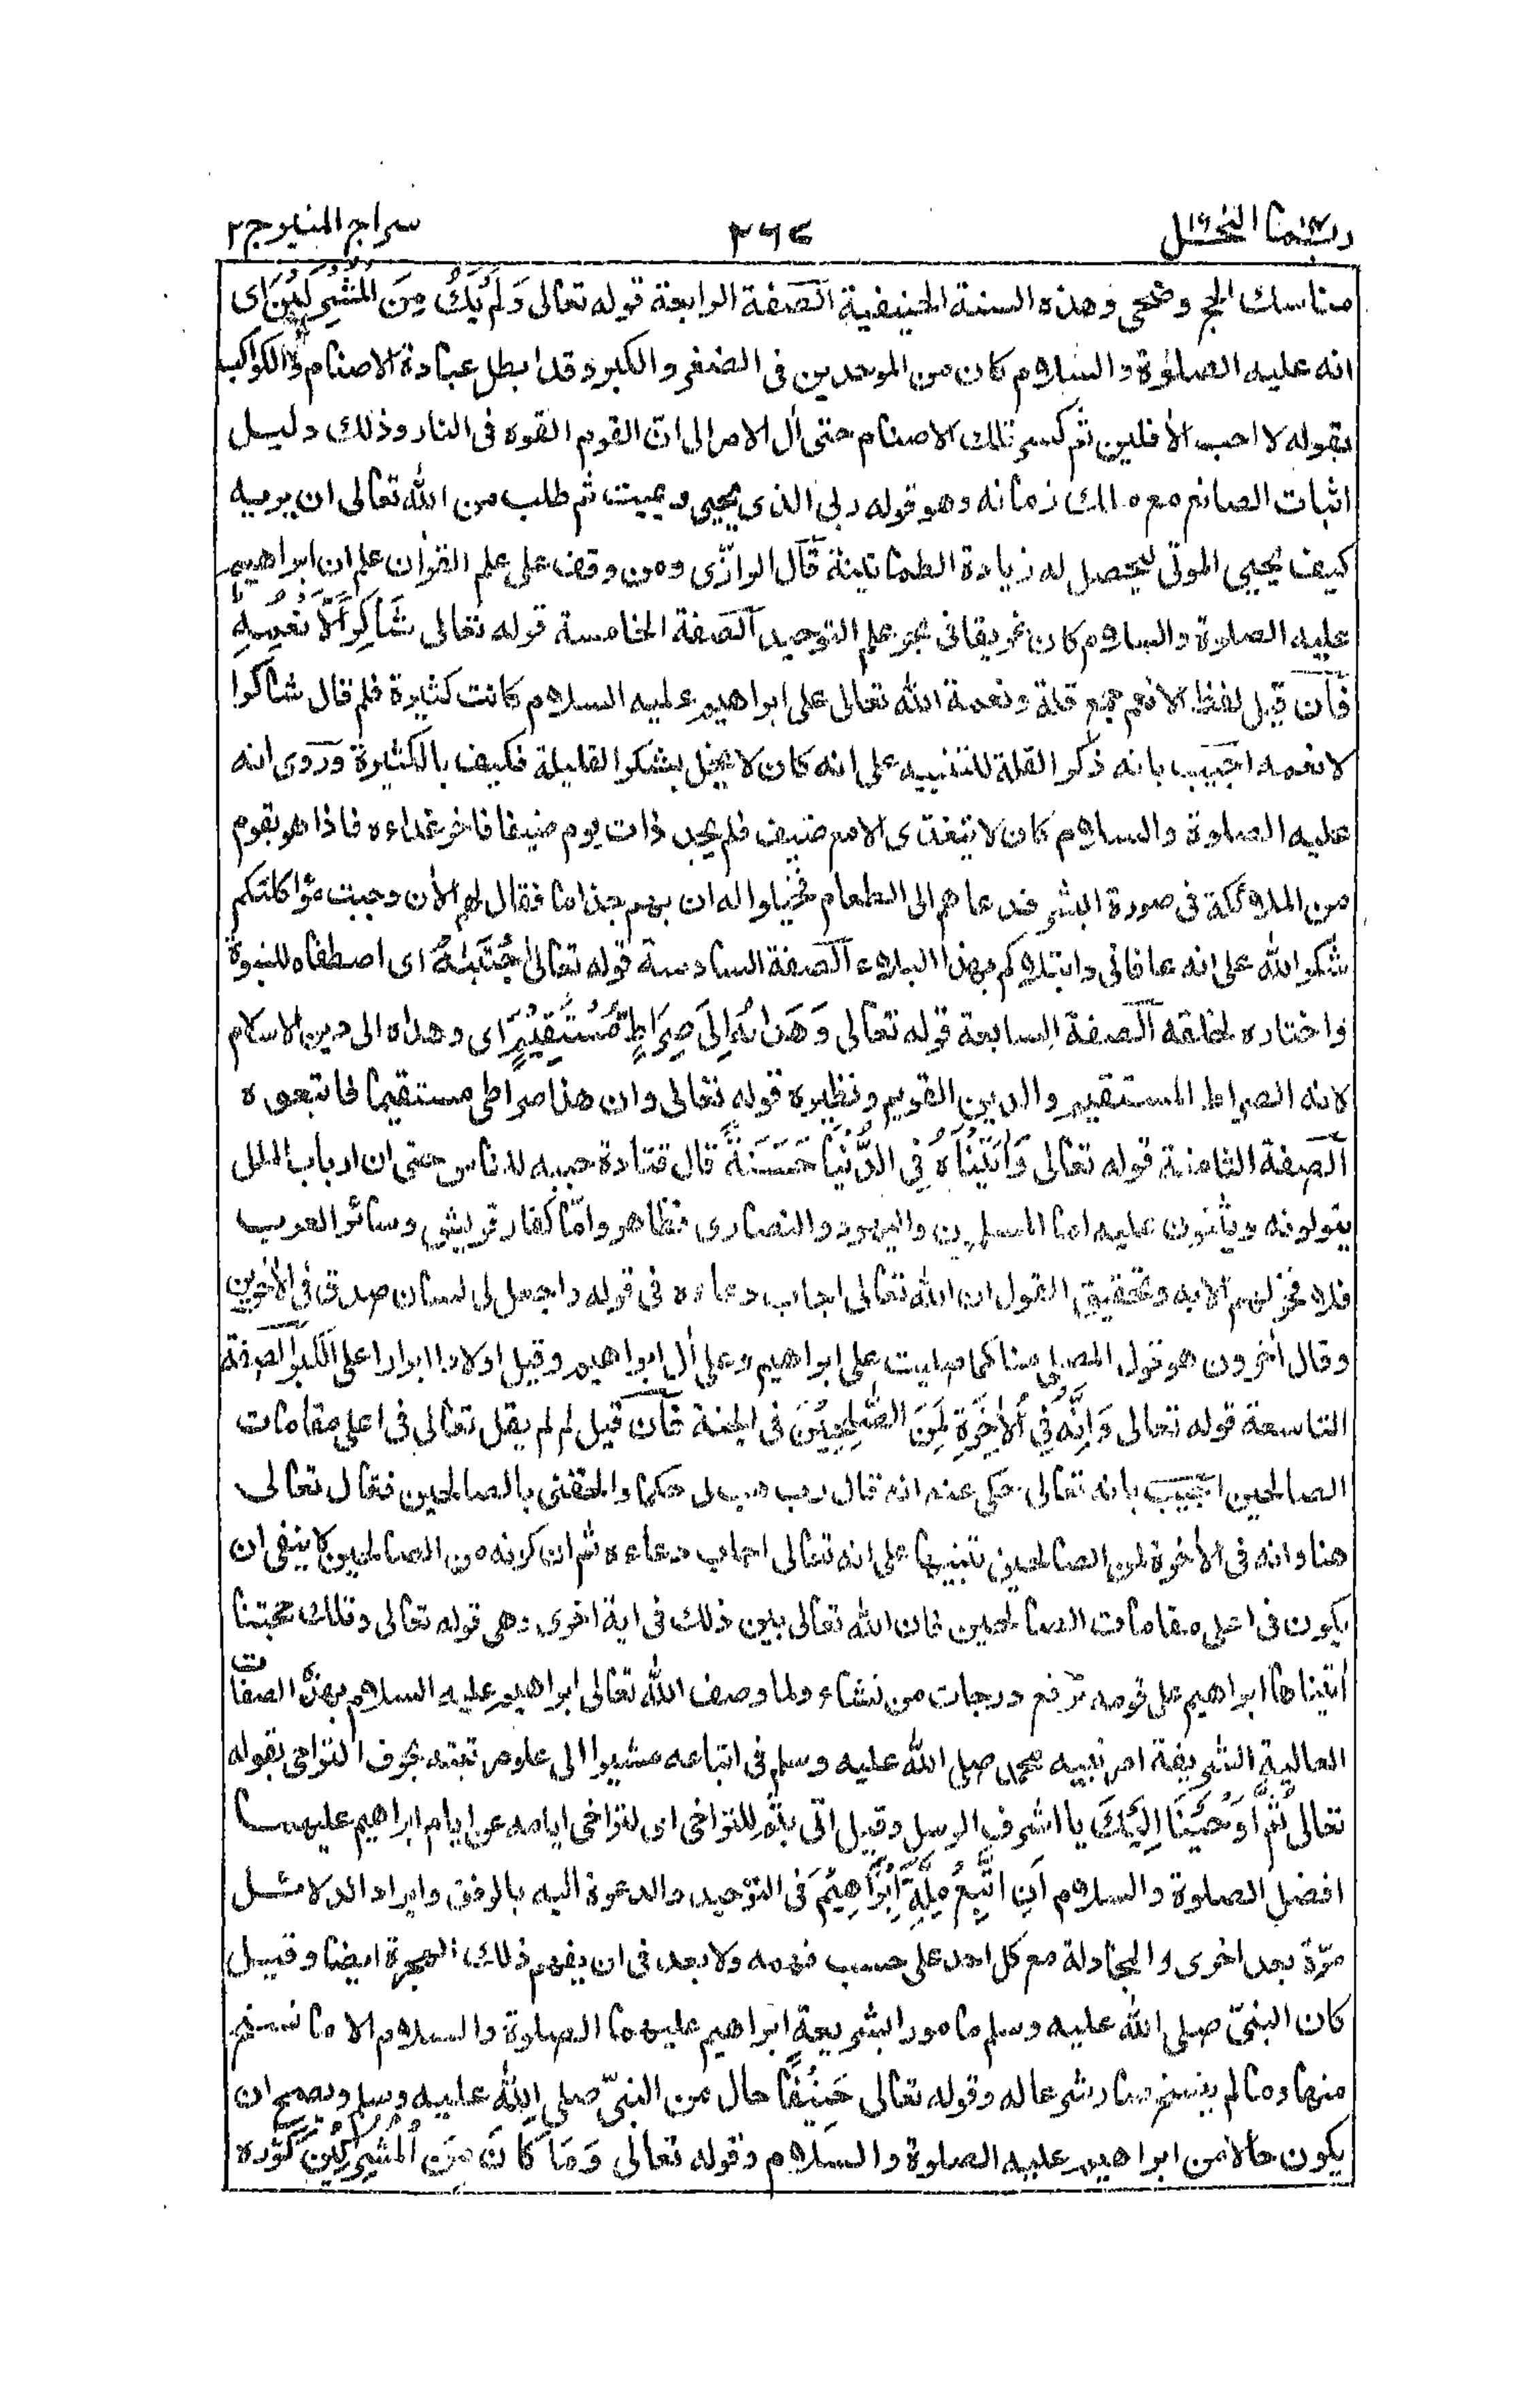 ربما ١٤ النحل ١٦ ٢٦٤ سراج المنير ج ٢
مناسك الحج وضحى وهذه السنة الحنيفية الصفة الرابعة قوله تعالى وَلَمْ يَكُ مِنَ الْمُشْرِكِيْنَ اى
انه عليه الصلوة والسلام كان من الموحدين فى الصغر والكبر وقد ابطل عبادة الاصنام والكواكب
بقوله لا احب الأفلين ثم كسر تلك الاصنام حتى أل الامر الى ان القوم القوه فى النار وذلك دليل
اثبات الصانع مع ملك زمانه وهو قوله ربى الذى يحيى ويميت ثم طلب من الله تعالى ان يريه
كيف يحيى الموتى ليحصل له زيادة الطمانينة قال الرازى ومن وقف على علم القرأن علم ان ابراهيم
عليه الصلوة والسلام كان غريقا فى بحر علم التوحيد الصفة الخامسة قوله تعالى شَاكِرًا لِّأَنْعُمِهِ
فان قيل لفظ الانعم جمع قلة ونعمة الله تعالى على ابراهيم عليه السلام كانت كثيرة فلم قال شاكرا
لانعمه اجيب بانه ذكر القلة للتنبيه على انه كان لا يخل بشكر القليلة فكيف بالكثيرة وروى انه
عليه الصلوة والسلام كان لا يتغدى الا مع ضيف فلم يجد ذات يوم ضيفا فاخر غداءه فاذا هو بقوم
من الملائكة فى صورة البشر فدعاهم الى الطعام فخيلوا له ان بهم جذاما فقال لهم الأن وجبت مؤاكلتكم
شكرا لله على انه عافانى وابتلاكم بهذا البلاء الصفة السادسة قوله تعالى اجْتَبٰهُ اى اصطفاه للنبوة
واختاره لخلقه الصفة السابعة قوله تعالى وَهَدٰىهُ اِلٰى صِرَاطٍ مُّسْتَقِيْمٍ اى وهداه الى دين الاسلام
لانه الصراط المستقيم والدين القويم ونظيره قوله تعالى وان هذا صراطى مستقيما فاتبعوه
الصفة الثامنة قوله تعالى وَأٰتَيْنَاهُ فِي الدُّنْيَا حَسَنَةً قال قتادة حببه للناس حتى ان ارباب الملل
يتولونه ويثنون عليه اما المسلمون واليهود والنصارى فظاهر واما كفار قريش وسائر العرب
فلا فخر لهم الا به وتحقيق القول ان الله تعالى اجاب دعاءه فى قوله واجعل لى لسان صدق فى الأخرين
وقال أخرون هو قول المصلى منا كما صليت على ابراهيم وعلى أل ابراهيم وقيل اولادا ابرارا على الكبر الصفة
التاسعة قوله تعالى وَاِنَّهُ فِي الْأٰخِرَةِ لَمِنَ الصّٰلِحِيْنَ فى الجنة فان قيل لم لم يقل تعالى فى اعلى مقامات
الصالحين اجيب بانه تعالى حكى عنه انه قال رب هب لى حكما والحقنى بالصالحين فقال تعالى
هنا وانه فى الأخرة لمن الصالحين تنبيها على انه تعالى اجاب دعاءه ثم ان كونه من الصالحين لا ينفى ان
يكون فى اعلى مقامات الصالحين فان الله تعالى بين ذلك فى اية اخرى وهى قوله تعالى وتلك حجتنا
أتيناها ابراهيم على قومه نرفع درجات من نشاء ولما وصف الله تعالى ابراهيم عليه السلام بهذه الصفات
العالية الشريفة امر نبيه محمد صلى الله عليه وسلم فى اتباعه مشيرا الى علو مرتبته بحرف التراخى بقوله
تعالى ثُمَّ اَوْحَيْنَا اِلَيْكَ يا اشرف الرسل وقيل اتى بثم للتراخى اى لتراخى ايامه عن ايام ابراهيم عليهما
افضل الصلوة والسلام اَنِ اتَّبِعْ مِلَّةَ اِبْرَاهِيْمَ فى التوحيد والدعوة اليه بالرفق وايراد الدلائل
مرّة بعد اخرى والمجادلة مع كل احد على حسب فهمه ولا بعد فى ان يفهم ذلك الهجرة ايضا وقيل
كان النبىّ صلى الله عليه وسلم مامورا بشريعة ابراهيم عليهما الصلوة والسلام الا ما نسخ
منها وما لم ينسخ صار شرعا له وقوله تعالى حَنِيْفًا حال من النبىّ صلى الله عليه وسلم ويصح ان
يكون حالا من ابراهيم عليه الصلوة والسلام وقوله تعالى وَمَا كَانَ مِنَ الْمُشْرِكِيْنَ كرّره